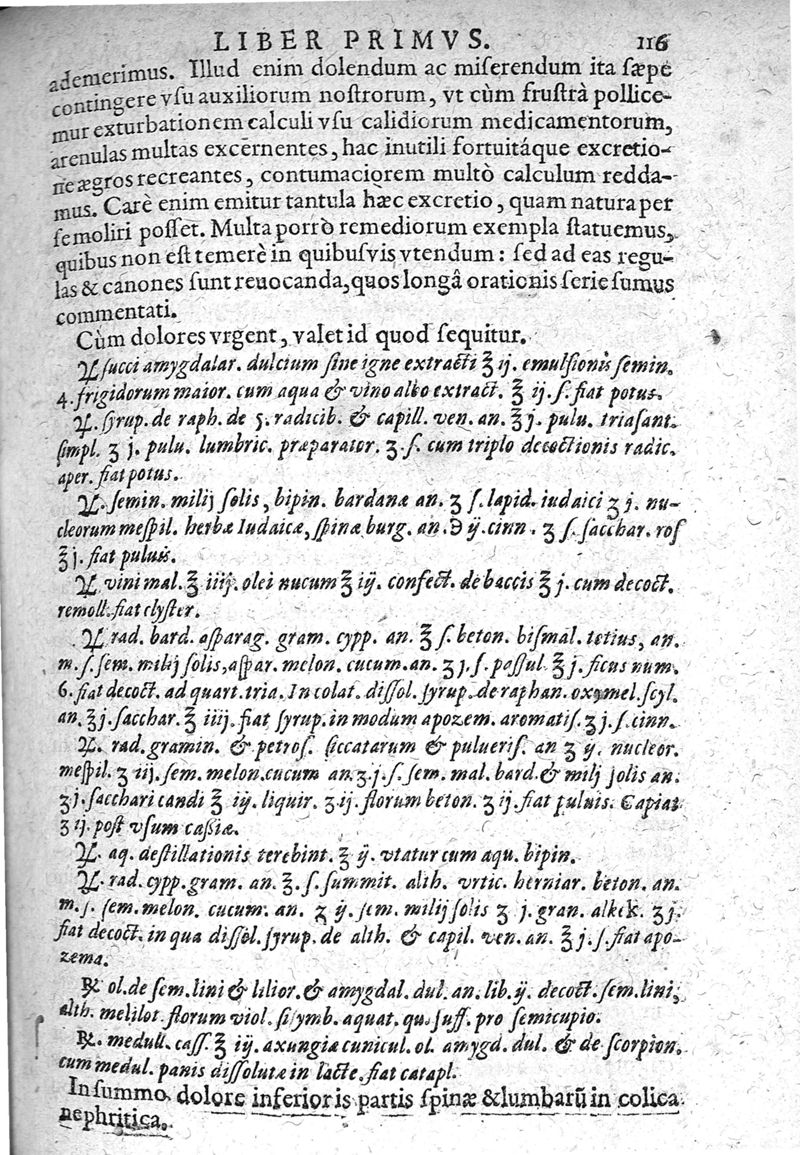 LIBER PRIMVS. 116
ademerimus. Illud enim dolendum ac miſerendum ita ſæpe
contingere vſu auxiliorum noſtrorum, vt cùm fruſtrà pollice-
mur exturbationem calculi vſu calidiorum medicamentorum,
arenulas multas excērnentes, hac inutili fortuitáque excretio-
ne ægros recreantes, contumaciorem multò calculum redda-
mus. Carè enim emitur tantula hæc excretio, quam natura per
ſe moliri poſſet. Multa porrò remediorum exempla ſtatuemus,
quibus non eſt temerè in quibuſvis vtendum: ſed ad eas regu-
las & canones ſunt reuocanda, quos longâ orationis ſerie ſumus
commentati.
Cùm dolores vrgent, valet id quod ſequitur.
℞ ſucci amygdalar. dulcium ſine igne extracti ℥ ij. emulſionis ſemin.
4. frigidorum maior. cum aqua & vino albo extract. ℥ ij. ſ. fiat potus.
℞. ſyrup. de raph. de 5. radicib. & capill. ven. an. ℥ j. pulu. triaſant.
ſimpl. ʒ j. pulu. lumbric. præparator. ʒ. ſ. cum triplo decoctionis radic.
aper. fiat potus.
℞. ſemin. milij ſolis, bipin. bardanæ an. ʒ ſ. lapid. iudaici ʒ j. nu-
cleorum meſpil. herbæ Iudaicæ, ſpinæ burg. an. ℈ ij. cinn. ʒ ſ. ſacchar. roſ
℥ j. fiat puluis.
℞ vini mal. ℥ iiij. olei nucum ℥ iij. confect. de baccis ℥ j. cum decoct.
remoll. fiat clyſter.
℞ rad. bard. aſparag. gram. cypp. an. ℥ ſ. beton. biſmal. totius, an.
m. ſ. ſem. milij ſolis, aſpar. melon. cucum. an. ʒ j. ſ. paſſul. ℥ j. ficus num.
6. fiat decoct. ad quart. tria. In colat. diſſol. ſyrup. de raphan. oxymel. ſcyl.
an. ℥ j. ſacchar. ℥ iiij. fiat ſyrup. in modum apozem. aromatiſ. ʒ j. ſ. cinn.
℞. rad. gramin. & petroſ. ſiccatarum & pulueriſ. an ʒ ij. nucleor.
meſpil. ʒ iij. ſem. melon. cucum an. ʒ. j. ſ. ſem. mal. bard. & milij ſolis an.
ʒ j. ſacchari candi ℥ iij. liquir. ʒ ij. florum beton. ʒ ij. fiat puluis. Capiat
ʒ ij. poſt vſum caſsiæ.
℞. aq. deſtillationis terebint. ℥ ij. vtatur cum aqu. bipin.
℞. rad. cypp. gram. an. ℥. ſ. ſummit. alth. vrtic. herniar. beton. an.
m. ſ. ſem. melon. cucum. an. ʒ ij. ſem. milij ſolis ʒ j. gran. alkek. ʒ j.
fiat decoct. in qua diſſol. ſyrup. de alth. & capil. ven. an. ℥ j. ſ. fiat apo-
zema.
℞ ol. de ſem. lini & lilior. & amygdal. dul. an. lib. ij. decoct. ſem. lini,
alth. melilot. florum viol. ſiſymb. aquat. qu. ſuff. pro ſemicupio.
℞. medull. caſſ. ℥ iij. axungiæ cunicul. ol. amygd. dul. & de ſcorpion.
cum medul. panis diſſolutæ in lacte. fiat catapl.
In ſummo dolore inferioris partis ſpinæ & lumbarũ in colica
nephritica.